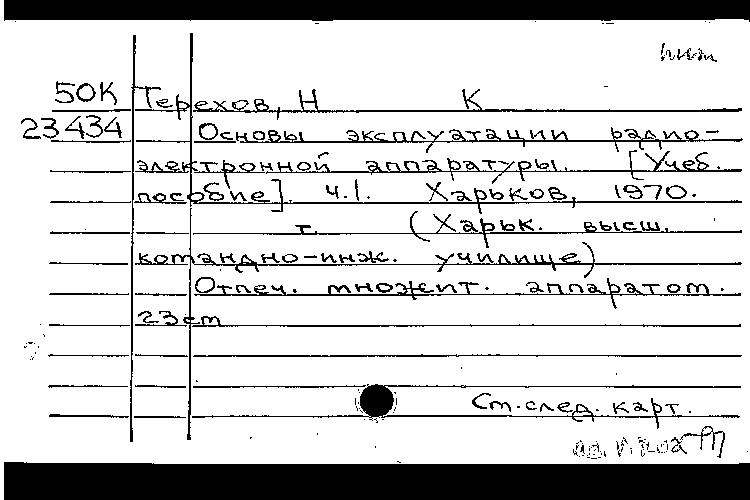 50К Терехов, Н К
23434 Основы эксплуатации радио-
электронной аппаратуры. [Учеб.
пособие]. ч.1. Харьков, 1970.
т. (Харьк. высш.
командно-инж. училище)
Отпеч. множит. аппаратом.
23см
Ст.след.карт.